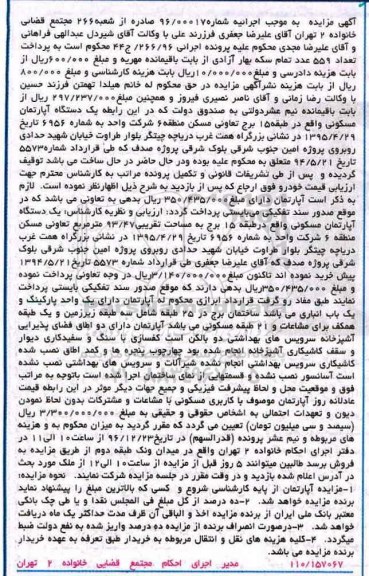 آگهی مزایده به موجب اجرائیه شماره۹۶/۰۰۰۱۷ صادره از شعبه۲۶۶ مجتمع قضایی
خانواده ۲ تهران آقای علیرضا جعفری فرزند علی با وکالت آقای شیردل عبدالهی فراهانی
و آقای علیرضا مجدی محکوم علیه پرونده اجرایی ۲۶۶/۹۶ ج۴۴ محکوم است به پرداخت
تعداد ۵۵۹ عدد تمام سکه بهار آزادی از بابت باقیمانده مهریه و مبلغ ۶۰۰/۰۰۰ریال از
بابت هزینه دادرسی و مبلغ۱۰/۰۰۰/۰۰۰ریال بابت هزینه کارشناسی و مبلغ ۸۰۰/۰۰۰
ریال از بابت هزینه نشرآگهی مزایده در حق محکوم له خانم هیلدا تهمتن فرزند حسین
با وکالت رضا زمانی و آقای ناصر نصیری فیروز و همچنین مبلغ۲۹۷/۲۳۷/۰۰۰ ریال از
بابت باقیمانده نیم عشردولتی به صندوق دولت که در این رابطه یک دستگاه آپارتمان
مسکونی واقع در طبقه۱۵ برج تعاونی مسکن منطقه۶ شرکت واحد به شماره ۶۹۵۶ تاریخ
۱۳۹۵/۴/۲۹ در نشانی بزرگراه همت غرب دریاچه چیتگر بلوار طراوت خیابان شهید حدادی
روبروی پروژه امین جنوب شرقی بلوک شرقی پروژه صدف که طی قرارداد شماره۵۵۷۳
تاریخ ۹۴/۵/۲۱ متعلق به محکوم علیه بوده ودر حال حاضر در حال ساخت می باشد توقیف
گردیده و پس از طی تشریفات قانونی و تکمیل پرونده مراتب به کارشناس محترم جهت
ارزیابی قیمت خودرو فوق ارجاع که پس از بازدید به شرح ذیل اظهارنظر نموده است. لازم
به ذکر است آپارتمان دارای مبلغ۳۵۰/۴۳۵/۰۰۰ ریال بدهی به تعاونی می باشد که در
موقع صدور سند تفکیکی می‌بایستی پرداخت گردد: ارزیابی و نظریه کارشناس: یک دستگاه
آپارتمان مسکونی واقع درطبقه ۱۵ برج به مساحت تقریبی۹۳/۴۷ مترمربع تعاونی مسکن
منطقه ۶ شرکت واحد به شماره ۶۹۵۶ تاریخ ۱۳۹۵/۴/۲۹ در نشانی بزرگراه همت غرب
دریاچه چیتگر بلوار طراوت خیابان شهید حدادی روبروی پروژه امین جنوب شرقی بلوک
شرقی پروژه صدف که آقای علیرضا جعفری طی قرارداد شماره ۵۵۷۳ تاریخ ۱۳۹۴/۵/۲۱
پیش خرید نموده اند تاکنون مبلغ۳/۱۴۰/۰۰۰/۰۰۰ریال در وجه تعاونی پرداخت نموده
و مبلغ ۳۵۰/۴۳۵/۰۰۰ریال بدهی دارند که موقع صدور سند تفکیکی بایستی پرداخت
نمایند طبق مفاد رو گرفت قرارداد ابرازی محکوم له آپارتمان دارای یک واحد پارکینگ و
یک باب انباری می باشد ساختمان برج در ۲۵ طبقه شامل سه طبقه زیرزمین و یک طبقه
همکف برای مشاعات و ۲۱ طبقه مسکونی می باشد آپارتمان دارای دو اطاق فضای پذیرایی
آشپزخانه سرویس های بهداشتی دو بالکن است کفسازی با سنگ و سفیدکاری دیوار
و سقف کاشیکاری آشپزخانه انجام شده بود چهارچوب پنجره ها و کمد اطاق نصب شده
کاشیکاری سرویس بهداشتی انجام نشده شیرآلات و سرویس های بهداشتی نصب نشده
است آسانسور نصب نشده و قسمتهایی از نمای ساختمان اجرا شده است باتوجه به مراتب
فوق و موقعیت محل و لحاظ پیشرفت فیزیکی و جمیع جهات دیگر موثر در این رابطه قیمت
عادلانه روز آپارتمان موصوف با کاربری مسکونی با مشاعات و مشترکات بدون لحاظ نمودن
دیون و تعهدات احتمالی به اشخاص حقوقی و حقیقی به مبلغ ۳/۳۰۰/۰۰۰/۰۰۰ ریال
(سیصد و سی میلیون تومان) تعیین می گردد که مقرر گردید به میزان محکوم به و هزینه
های مربوطه و نیم عشر پرونده (قدرالسهم) در تاریخ۹۶/۱۲/۲۳ از ساعت۱۰ الی۱۱ در
دفتر اجرای احکام خانواده ۲ تهران واقع در میدان ونک طبقه دوم از طریق مزایده به
فروش برسد طالبین میتوانند ۵ روز قبل از مزایده از ساعت۱۰ الی۱۲ از ملک مورد بحث
در آدرس اعلام شده بازدید و در وقت مقرر در جلسه مزایده شرکت نمایند. نحوه مزایده:
۱-مزایده آپارتمان از پایه کارشناسی شروع و کسی که بالاترین مبلغ را پیشنهاد نماید
برنده مزایده خواهد شد. ۲-ده درصد از کل مبلغ فی المجلس نقدا و یا طی چک بانکی
معتبر بانک ملی ایران از برنده مزایده اخذ و الباقی آن ظرف مدت حداکثر یک ماه دریافت
خواهد شد. ۳-درصورت انصراف برنده از مزایده ده درصد واریز شده به نفع دولت ضبط
میگردد. ۴-کلیه هزینه های نقل و انتقال مربوطه به خریدار طبق تعرفه به عهده خریدار
برنده مزایده می باشد.
۱۱۰/۱۵۷۰۶۷ مدیر اجرای احکام مجتمع قضایی خانواده ۲ تهران